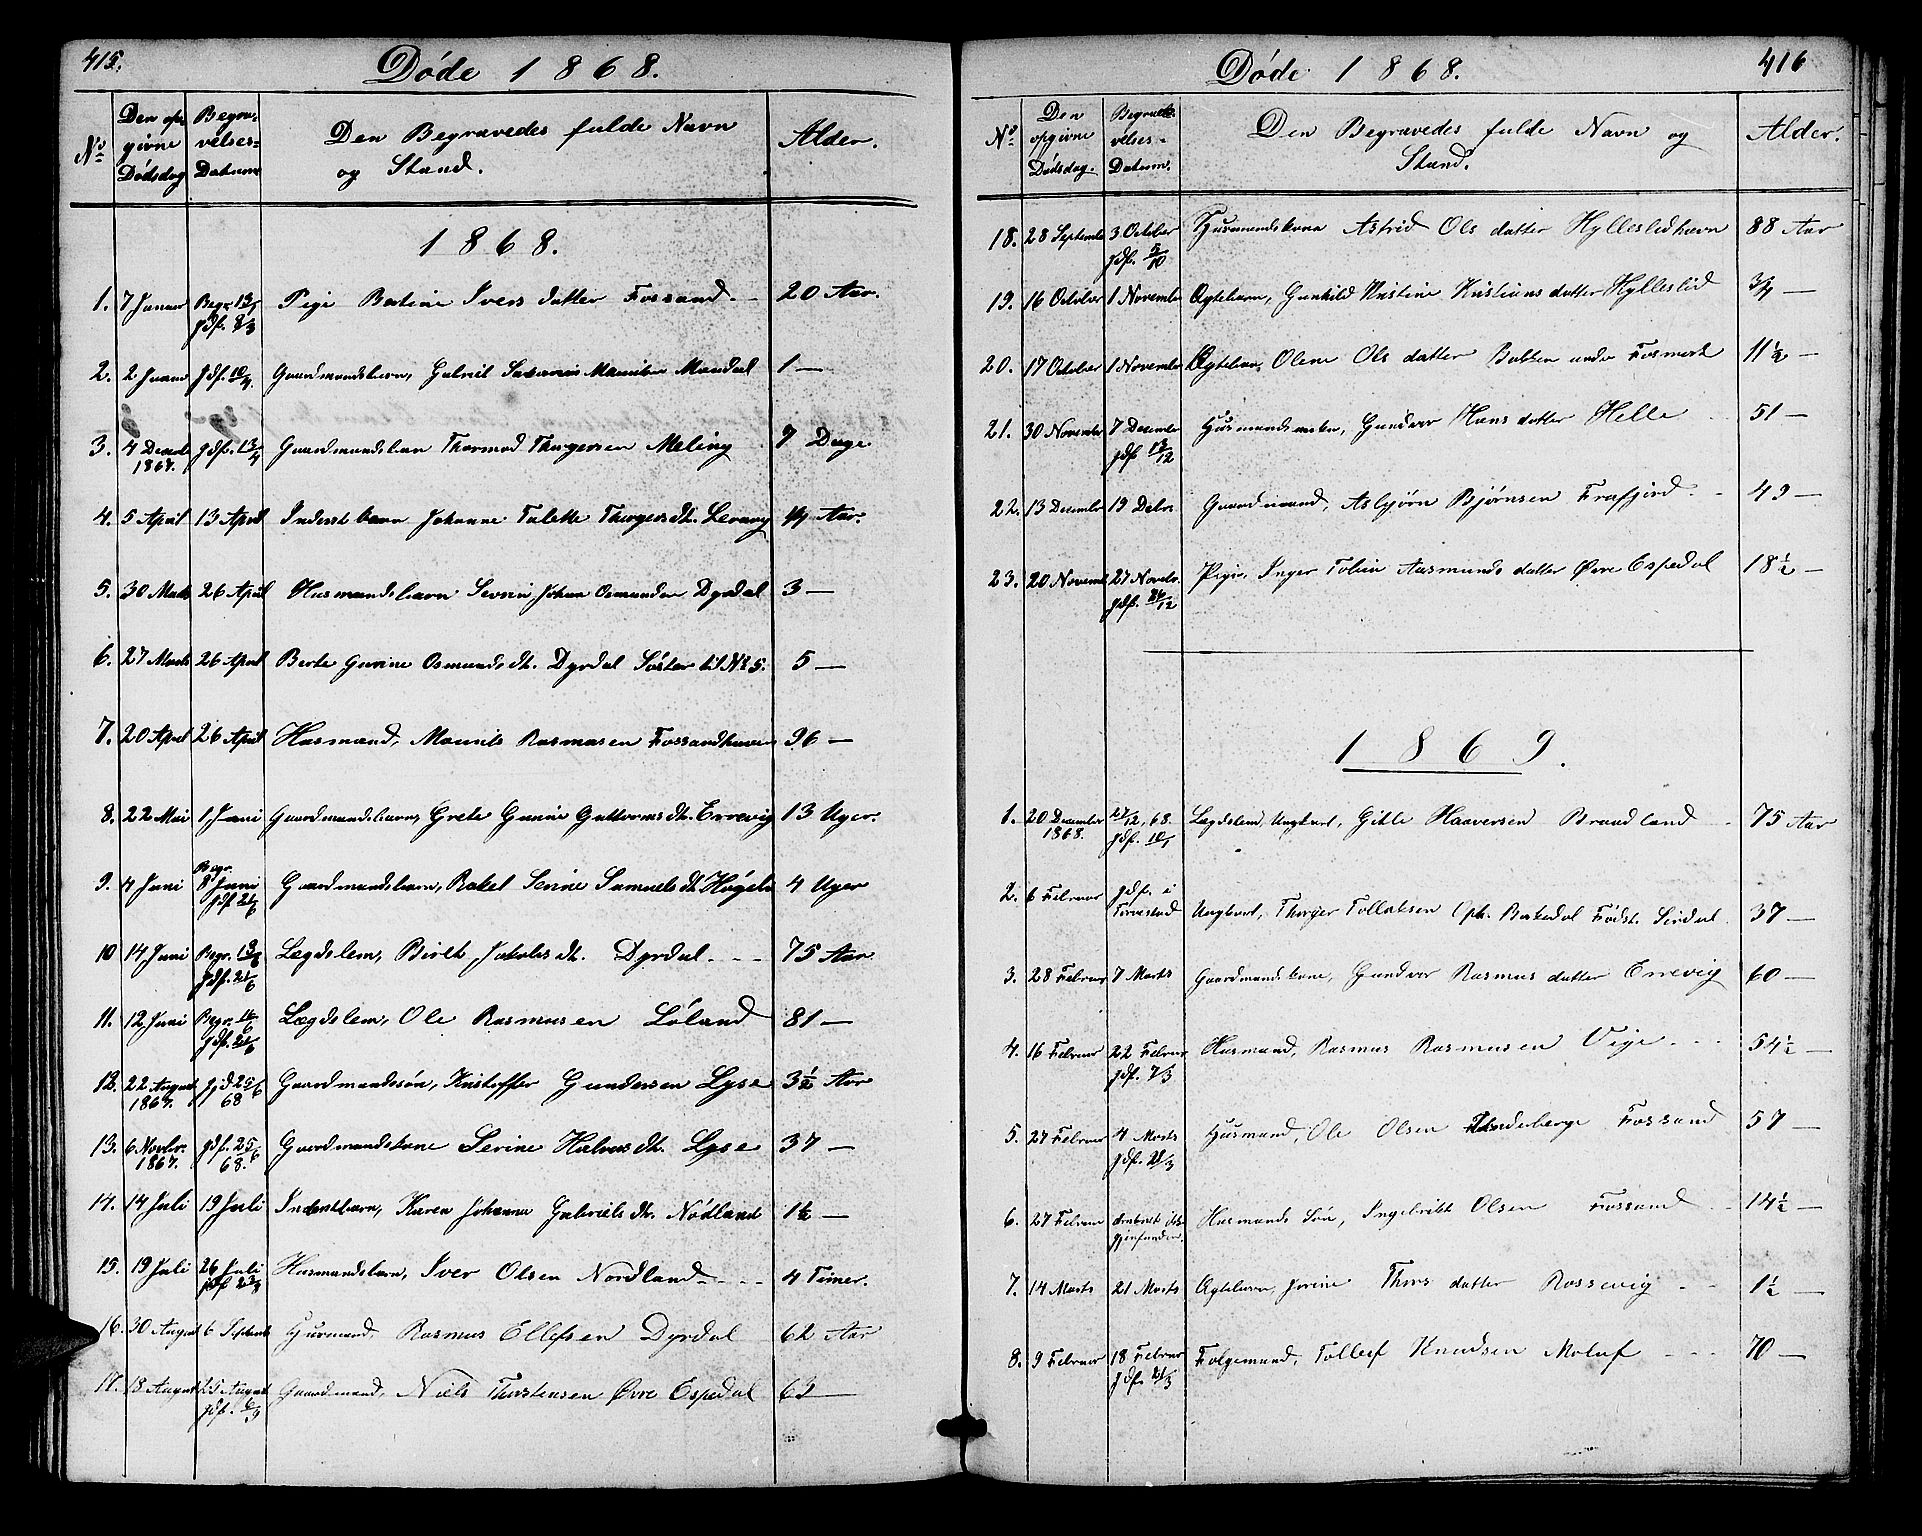 415.
Døde 1868.
No Den opgivne Dødsdag Begravelses-Datum Den Begravedes fulde Navn og Stand. Alder.
1868.
1. 7 Januar Begr. 13/1 jdf. 8/3 Pige Bertine Ivers datter Fossand 20 Aar.
2. 2 Januar jdf. 10/4 Gaardmandsbarn, Gabriel Mauritsen Mandal 1 —
3. 4 Decbr 1867. jdf. 13/4 Gaardmandsbarn Thormod Thorgersen Meling 7 Dage
4. 5 April 13 April Inderstbarn Johanne Talette Thorgers dt. Levang Aar.
5. 30 Marts 26 April Husmandsbarn Severin Johan Osmundsen Dyrdal 3 —
6. 27 Marts 26 April Berte Gurine Osmunds dt. Dyrdal Søster til No 5. 5 —
7. 20 April 26 April Husmand, Maurits Rasmusen Fossandhavn 96 —
8. 22 Mai 1 Juni Gaardmandsbarn, Grete Gurine Guttorms dt. Errevig 13 Uger.
9. 4 Juni Begr. 8 Juni jdf 21/6 Gaardmandsbarn, Rakel Serine Samuels dt. 4 Uger
10 14 Juni Begr. 19/6 jdf. 21/6 Lægdslem, Birte Jakobs dt. Dyrdal 75 Aar
11. 12 Juni Begr. jdf. 21/6 Lægdslem, Ole Rasmusen Løland 81 —
12. 22 August 1867. 68 Gaardmandssøn, Kristoffer Gundersen Lyse 3½ Aar
13. 6 Novbr. 1867. jdf. 25/6 68. Gaardmandskone Serine Halvors dt. Lyse 37 —
14. 14 Juli 19 Juli Inderstbarn, Karen Johanne Gabriels dt. Nødland 1½ —
15. 19 Juli 26 Juli jdf Husmandsbarn, Iver Olsen Nordland 4 Timer.
16. 30 August 6 Septemb Husmand, Rasmus Ellefsen Dyrdal 62 Aar
17. 18 August 25 August jdf. 6/9 Gaardmand, Niels Thorstensen Øvre Espedal 63 —
416
Døde 1868.
No Den opgivne Dødsdag. Begravelses-Datum. Den Begravedes fulde Navn og Stand. Alder.
18. 28 Septembr 3 October jdf. 5/10 Husmandskone Astrid Ols datter Hylleslidhavn 88 Aar
19. 16 October 1 November Ægtebarn, Gunhild Kristine Kristians datter Hylleslid 3/4 —
20. 17 October 1 November Ægtebarn, Olene Ols datter Bakken under Fosmark 11½ —
21. 30 November 7 December jdf 13/12 Husmandsenke, Gundvor Hans datter Helle 51 —
22. 13 December 19 Decbr. Gaardmand, Asbjørn Bjørnsen Frafjord 49 —
23. 20 Novemb 27 Novbr. jdf. Pige, Inger Tobia Aasmunds datter Øvre Espedal 18½ —
1869.
1. 20 December 1868. 27/12, 68. jdf. 10/1 Lægdslem, Ungkarl, Gitle Haaversen Brandland 75 Aar
2. 6 Februar jdf. i Torvestad Ungkarl, Thorger Tollaksen Oph. Botsedal Født. Sirdal. 37 —
3. 28 Februar 7 Marts Gaardmandskone, Gundvor Rasmus datter Errevig 60 —
4. 16 Februar 22 Februar jdf. 7/3 Husmand, Rasmus Rasmusen Vige 54½ —
5. 27 Februar 4 Marts jdf. 21/3 Husmand, Ole Olsen Underberge Fossand 57 —
6. 27 Februar druknet ikke gjenfunden. Husmands Søn, Ingebrikt Olsen Fossand 14½ —
7. 14 Marts 21 Marts Ægtebarn, Jorine Thors datter Rossevig 1½ —
8. 9 Februar 18 Februar jdf. 21/3 Følgemand, Tollef Knudsen Moluf 70 —